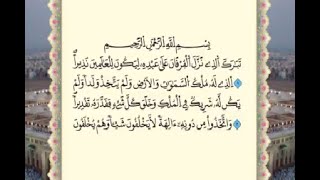 بِسْمِ ٱللَّهِ ٱلرَّحْمَٰنِ ٱلرَّحِيمِ
تَبَارَكَ ٱلَّذِى نَزَّلَ ٱلْفُرْقَانَ عَلَىٰ عَبْدِهِۦ لِيَكُونَ لِلْعَٰلَمِينَ نَذِيرًا
ٱلَّذِى لَهُۥ مُلْكُ ٱلسَّمَٰوَٰتِ وَٱلْأَرْضِ وَلَمْ يَتَّخِذْ وَلَدًا وَلَمْ
يَكُن لَّهُۥ شَرِيكٌ فِى ٱلْمُلْكِ وَخَلَقَ كُلَّ شَىْءٍ فَقَدَّرَهُۥ تَقْدِيرًا
وَٱتَّخَذُوا۟ مِن دُونِهِۦٓ ءَالِهَةً لَّا يَخْلُقُونَ شَيْـًٔا وَهُمْ يُخْلَقُونَ